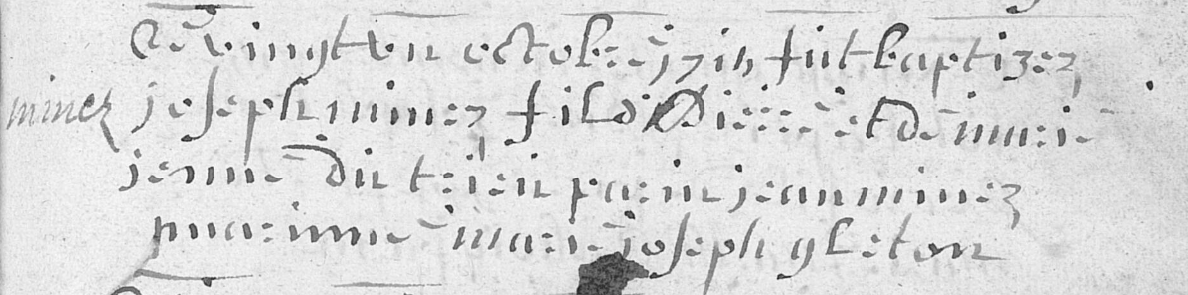 Ce vingt un octobre 1714 fut baptizez
minez
joseph minez fils de Pierre et de marie
jenne du trieu parin jean minez
marinne marie joseph gleton